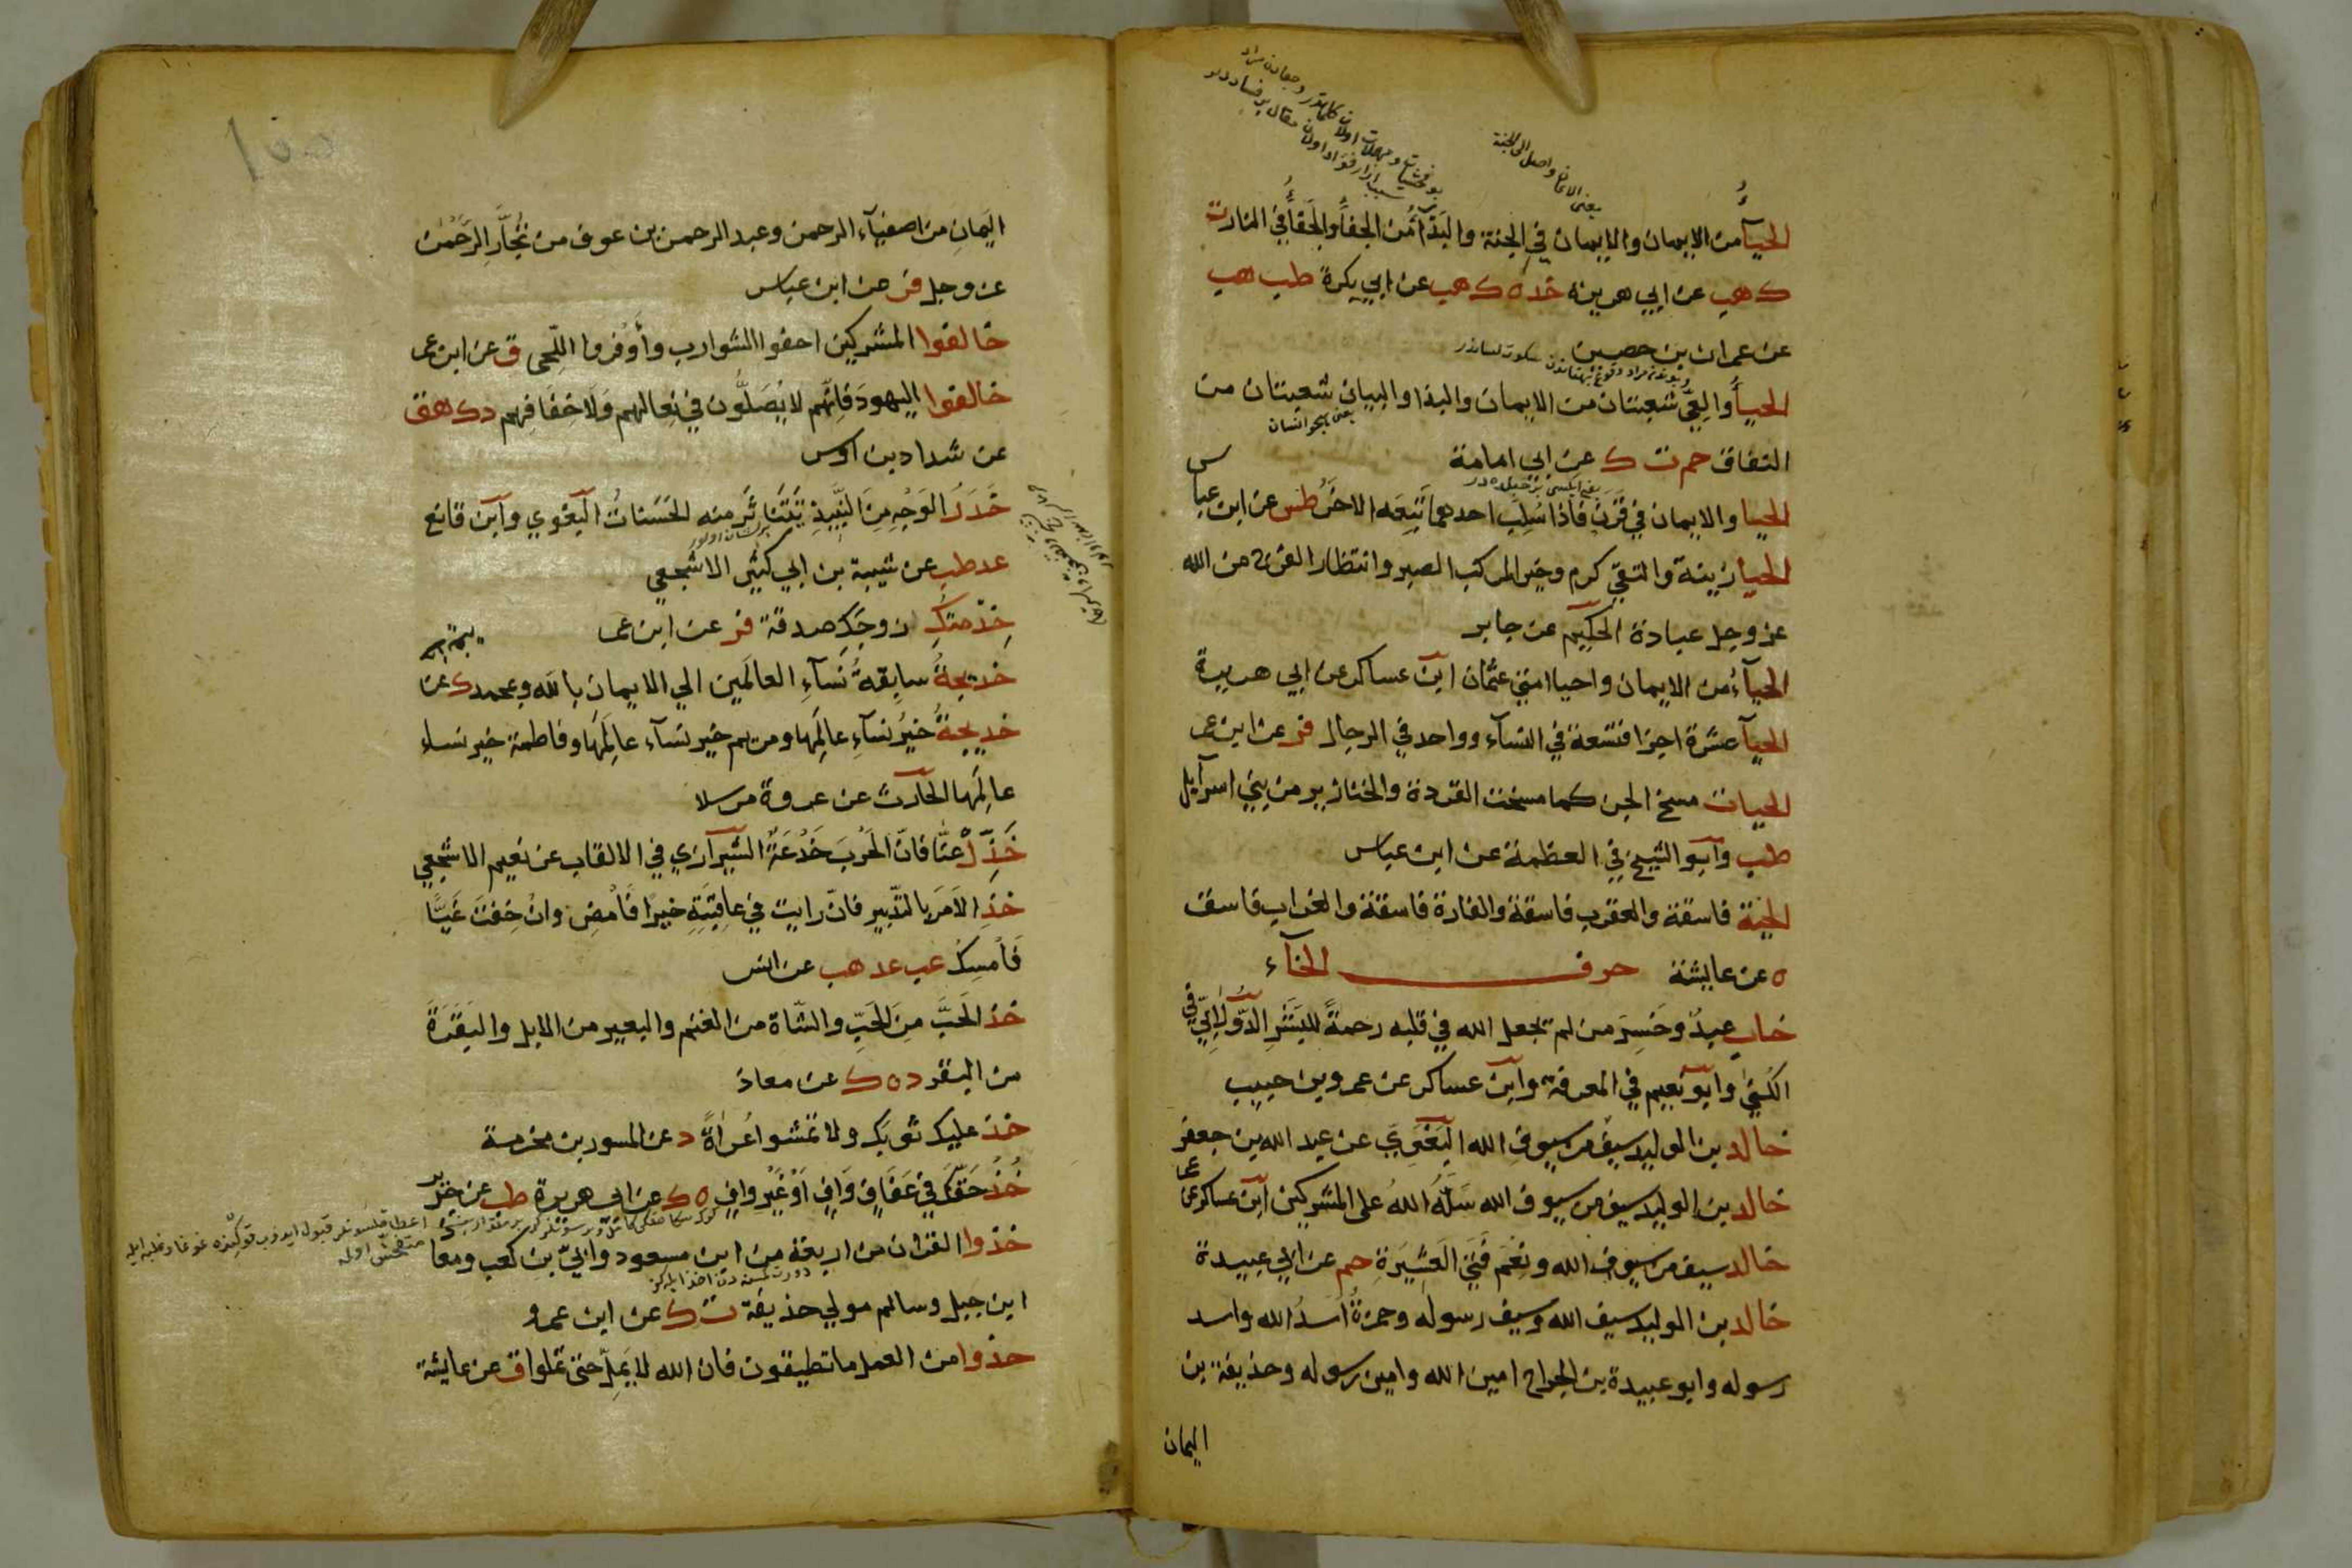 الحيآء من الايمان والايمان في الجنة والبذآء من الجفآء والجفآء في النار ت
ك هب عن ابي هريرة خد ه ك هب عن ابي بكرة طب هب
عن عمران بن حصين
الحيآء والعيّ شعبتان من الايمان والبذا والبيان شعبتان من
النفاق حم ت ك عن ابي امامة
الحيا والايمان في قرن فاذا سلب احدهما تبعه الاخر طس عن ابن عباس
الحيا زينة والتقي كرم وخير المركب الصبر وانتظار الفرج من الله
عز وجل عبادة الحكيم عن جابر
الحيآء من الايمان واحيا امتي عثمان ابن عساكر عن ابي هريرة
الحيآ عشرة اجزا فتسعة في النسآء وواحد في الرجال فر عن ابن عمر
الحيات مسخ الجن كما مسخت القردة والخنازير من بني اسرآيل
طب وابو الشيخ في العظمة عن ابن عباس
الحية فاسقة والعقرب فاسقة والفارة فاسقة والغراب فاسق
ه عن عايشة حرف الخآء
خاب عبد وخسر من لم يجعل الله في قلبه رحمة للبشر الدولابي في
الكني وابو نعيم في المعرفة وابن عساكر عن عمرو بن حبيب
خالد بن الوليد سيف من سيوف الله البغوي عن عبد الله بن جعفر
خالد بن الوليد سيف من سيوف الله سله الله على المشركين ابن عساكر عن عمر
خالد سيف من سيوف الله ونعم فتي العشيرة حم عن ابي عبيدة
خالد بن الوليد سيف الله وسيف رسوله وحمزة اسد الله واسد
رسوله وابو عبيدة بن الجراح امين الله وامين رسوله وحذيفة بن
اليمان
اليمان من اصفيآء الرحمن وعبد الرحمن بن عوف من تجار الرحمن
عز وجل فر عن ابن عباس
خالفوا المشركين احفوا الشوارب وأوفروا اللحى ق عن ابن عمر
خالفوا اليهود فانهم لا يصلون في نعالهم ولا خفافهم د ك هق
عن شداد بن اوس
خدر الوجه من النبيذ تتناثر منه الحسنات البغوي وابن قانع
عد طب عن شيبة بن ابي كثير الاشجعي
خدمتك زوجك صدقة فر عن ابن عمر
خديجة سابقة نسآء العالمين الي الايمان بالله وبمحمد ك عن
خديجة خير نسآء عالمها ومريم خير نسآء عالمها وفاطمة خير نساء
عالمها الحارث عن عروة مرسلا
خذل عنا فان الحرب خدعة الشيرازي في الالقاب عن نعيم الاشجعي
خذ الامر بالتدبير فان رايت في عاقبته خيرا فامض وان خفت غيا
فامسك عب عد هب عن انس
خذ الحب من الحب والشاة من الغنم والبعير من الابل والبقرة
من البقر د ه ك عن معاذ
خذ عليك ثوبك ولا تمشوا عراة د عن المسور بن مخرمة
خذ حقك في عفاف واف او غير واف ه ك عن ابي هريرة طب عن جرير
خذوا القران من اربعة من ابن مسعود وابيّ بن كعب ومعا
ابن جبل وسالم مولي حذيفة ت ك عن ابن عمرو
خذوا من العمل ما تطيقون فان الله لا يمل حتى تملوا ق عن عايشة